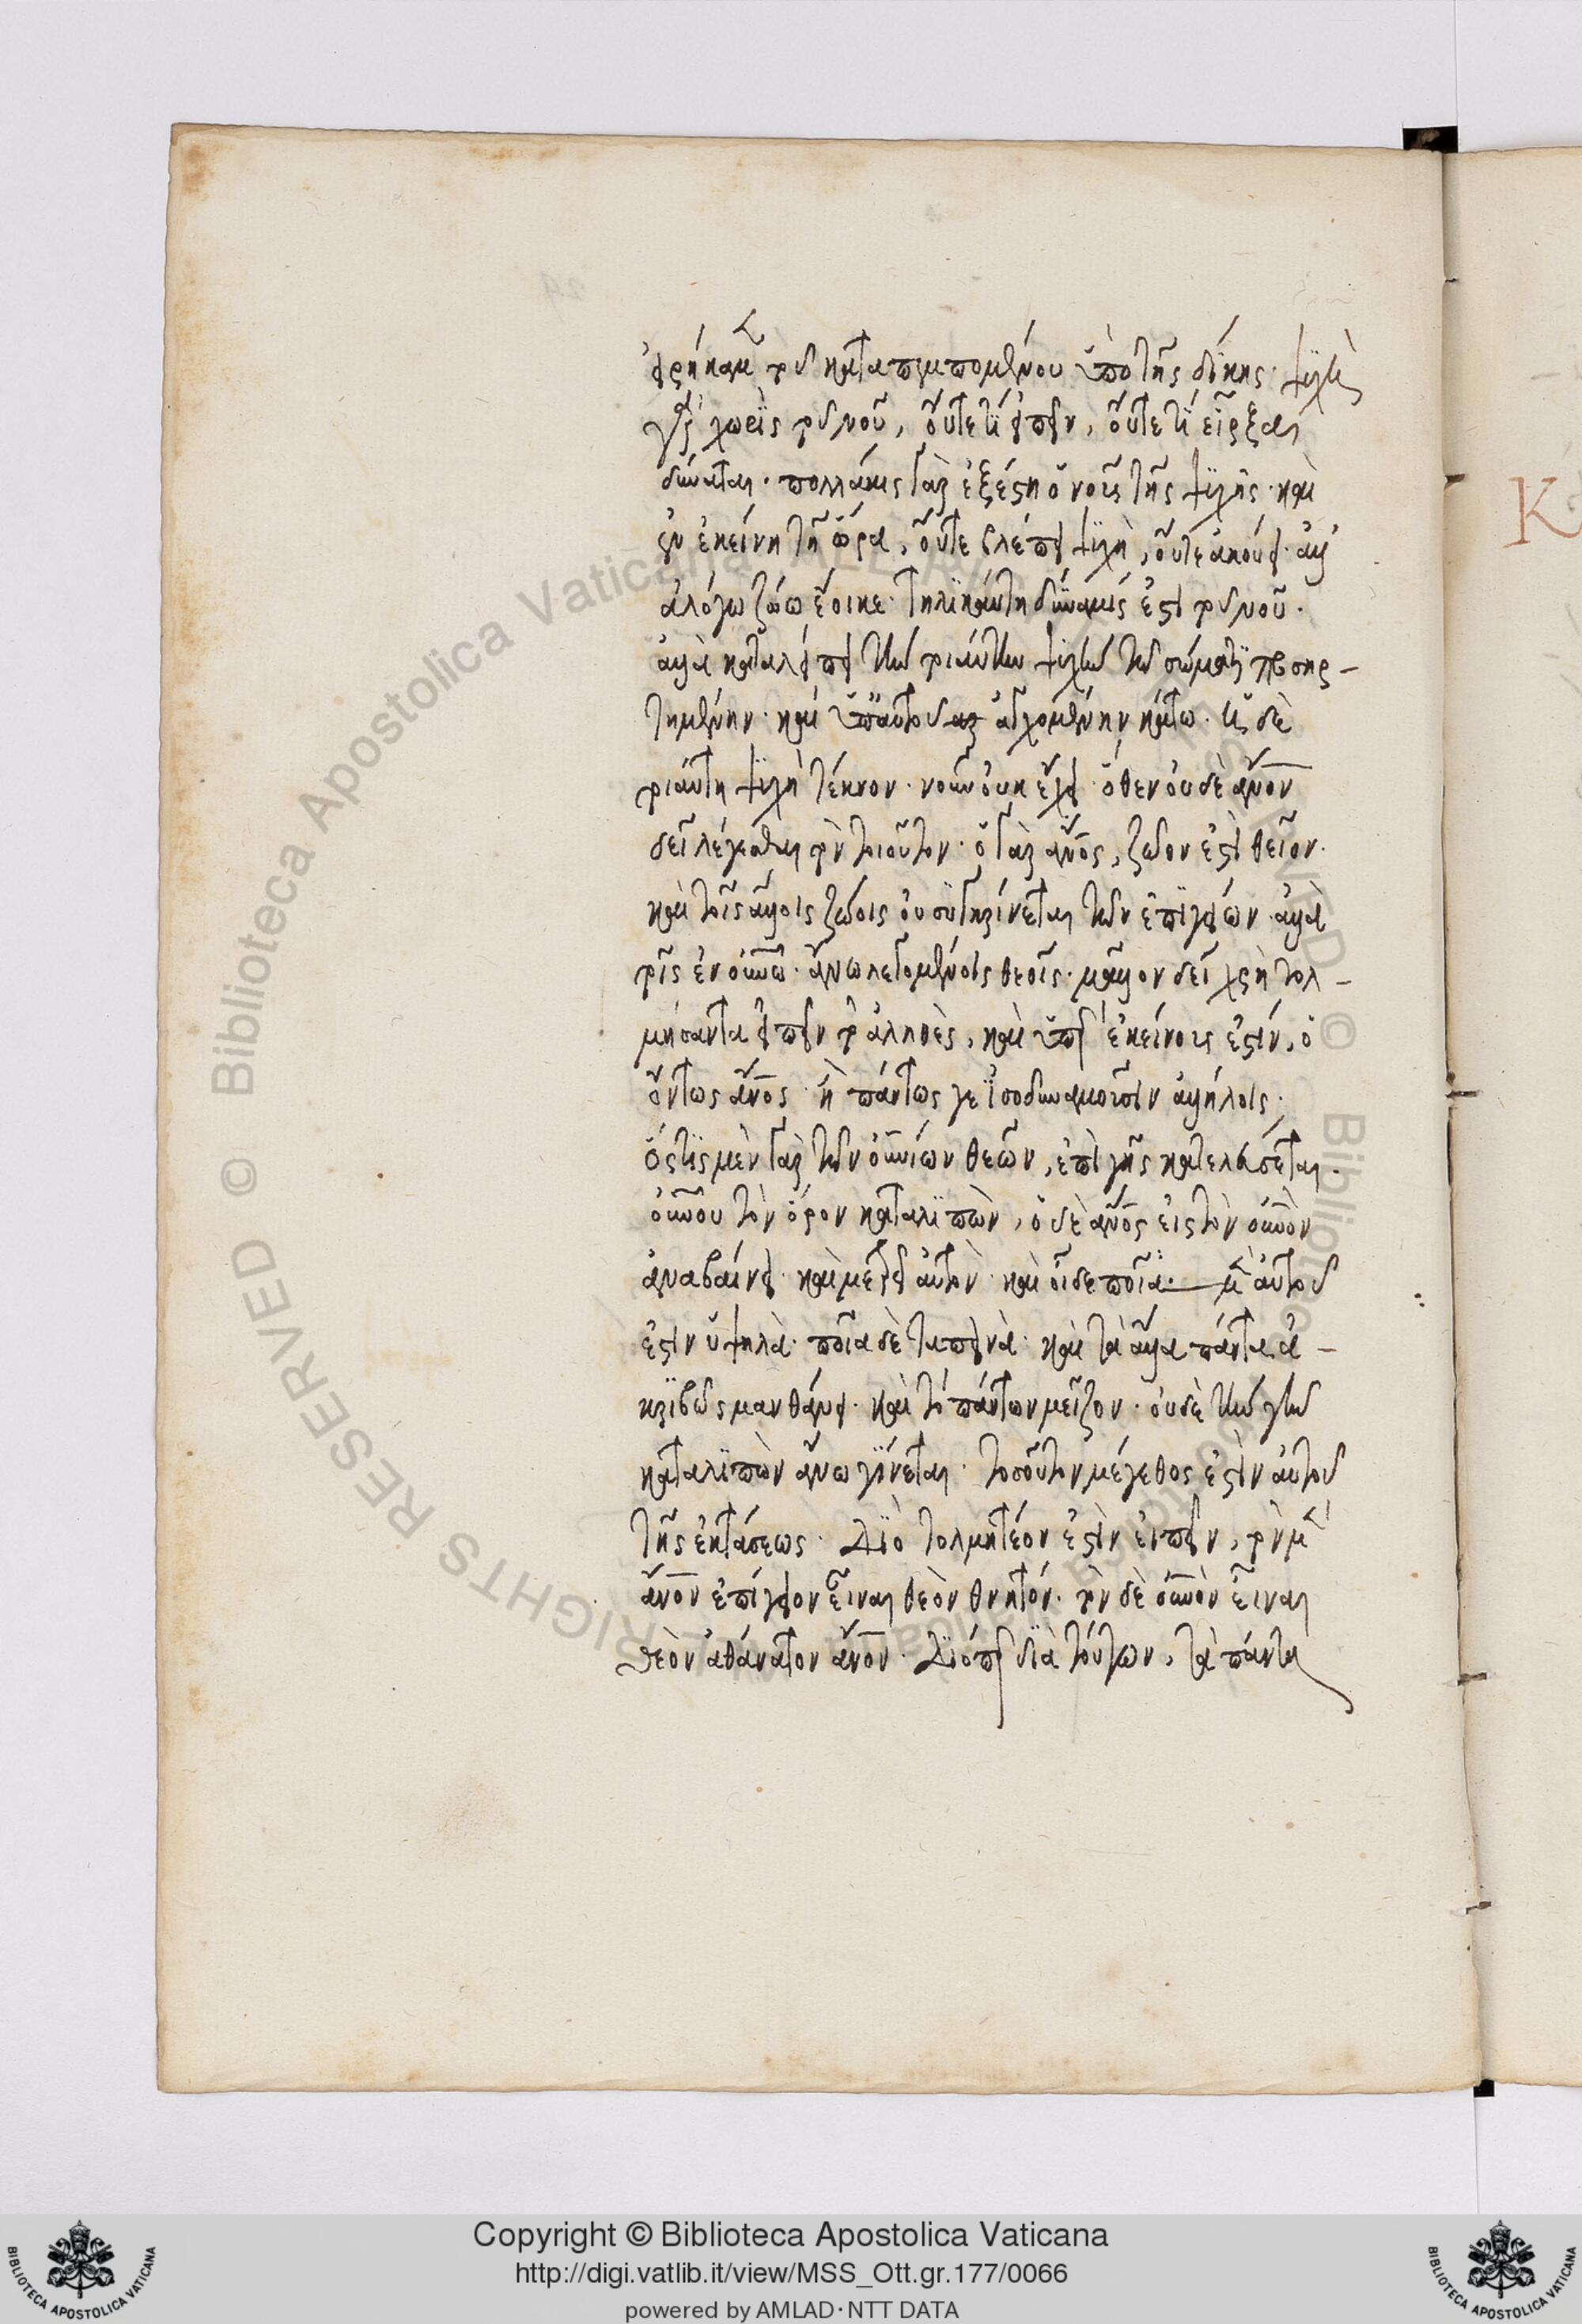 εἰρήκαμεν τοῦ καταπεμπομένου ὑπὸ τῆς δίκης· ψυχὴ
γὰρ χωρὶς τοῦ νοῦ, οὔτε τι εἰπεῖν, οὔτε τι εἶρξαι
δύναται· πολλάκις γὰρ ἐξέστη ὁ νοῦς τῆς ψυχῆς· καὶ
ἐν ἐκείνη τῆ ὥρα, οὔτε βλέπει ψυχὴ, οὔτε ἀκούει· ἀλλ'
ἀλόγω ζώω ἔοικε· τηλικαύτη δύναμίς ἐστι τοῦ νοῦ·
ἀλλὰ καταλείπει τὴν τοιαύτην ψυχὴν τῶ σώματι προσηρ-
τημένην· καὶ ὑπ' αὐτοῦ ἀγχομένην κάτω· ἡ δὲ
τοιαύτη ψυχὴ τέκνον· νοῦν οὐκ ἔχει· ὅθεν οὐδὲ ἄνον
δεῖ λέγεσθαι τὸν τοιοῦτον· ὁ γὰρ ἄνος, ζῶον ἐστὶ θεῖον·
καὶ τοῖς ἄλλοις ζώοις οὐ συγκρίνεται τῶν ἐπιγείων· ἀλλὰ
τοῖς ἐν οὐνῶ· ἄνω λεγομένοις θεοῖς· μᾶλλον δεῖ χρὴ τολ-
μήσαντα εἰπεῖν τὸ ἀληθὲς, καὶ ὑπὲρ ἐκείνους ἐστὶν, ὁ
ὄντως ἄνος· ἢ πάντως γε ἰσοδυναμοῦσιν ἀλλήλοις·
ὅστις μὲν γὰρ τῶν οὐνίων θεῶν, ἐπὶ γῆς κατελεύσεται·
οὐνοῦ τὸν ὅρον καταλιπὼν, ὁ δὲ ἄνος εἰς τὸν οὐνὸν
ἀναβαίνει· καὶ μετρεῖ αὐτὸν· καὶ οἶδε ποῖα μὲν αὐτοῦ
ἐστιν ὑψηλὰ· ποῖα δὲ ταπεινὰ· καὶ τὰ ἄλλα πάντα ἀ-
κριβῶς μανθάνει· καὶ τὸ πάντων μεῖζον· οὐδὲ τὴν γῆν
καταλιπὼν ἄνω γίνεται· τοσοῦτον μέγεθος ἐστὶν αὐτοῦ
τῆς ἐκτάσεως· Διὸ τολμητέον ἐστὶν εἰπεῖν, τὸν μὲν
ἄνον ἐπίγειον εἶναι θεὸν θνητόν· τὸν δὲ οὐνὸν εἶναι
θεὸν ἀθάνατον ἄνον· Διόπερ διὰ τούτων, τὰ πάντα
K
Copyright © Biblioteca Apostolica Vaticana
http://digi.vatlib.it/view/MSS_Ott.gr.177/0066
powered by AMLAD·NTT DATA